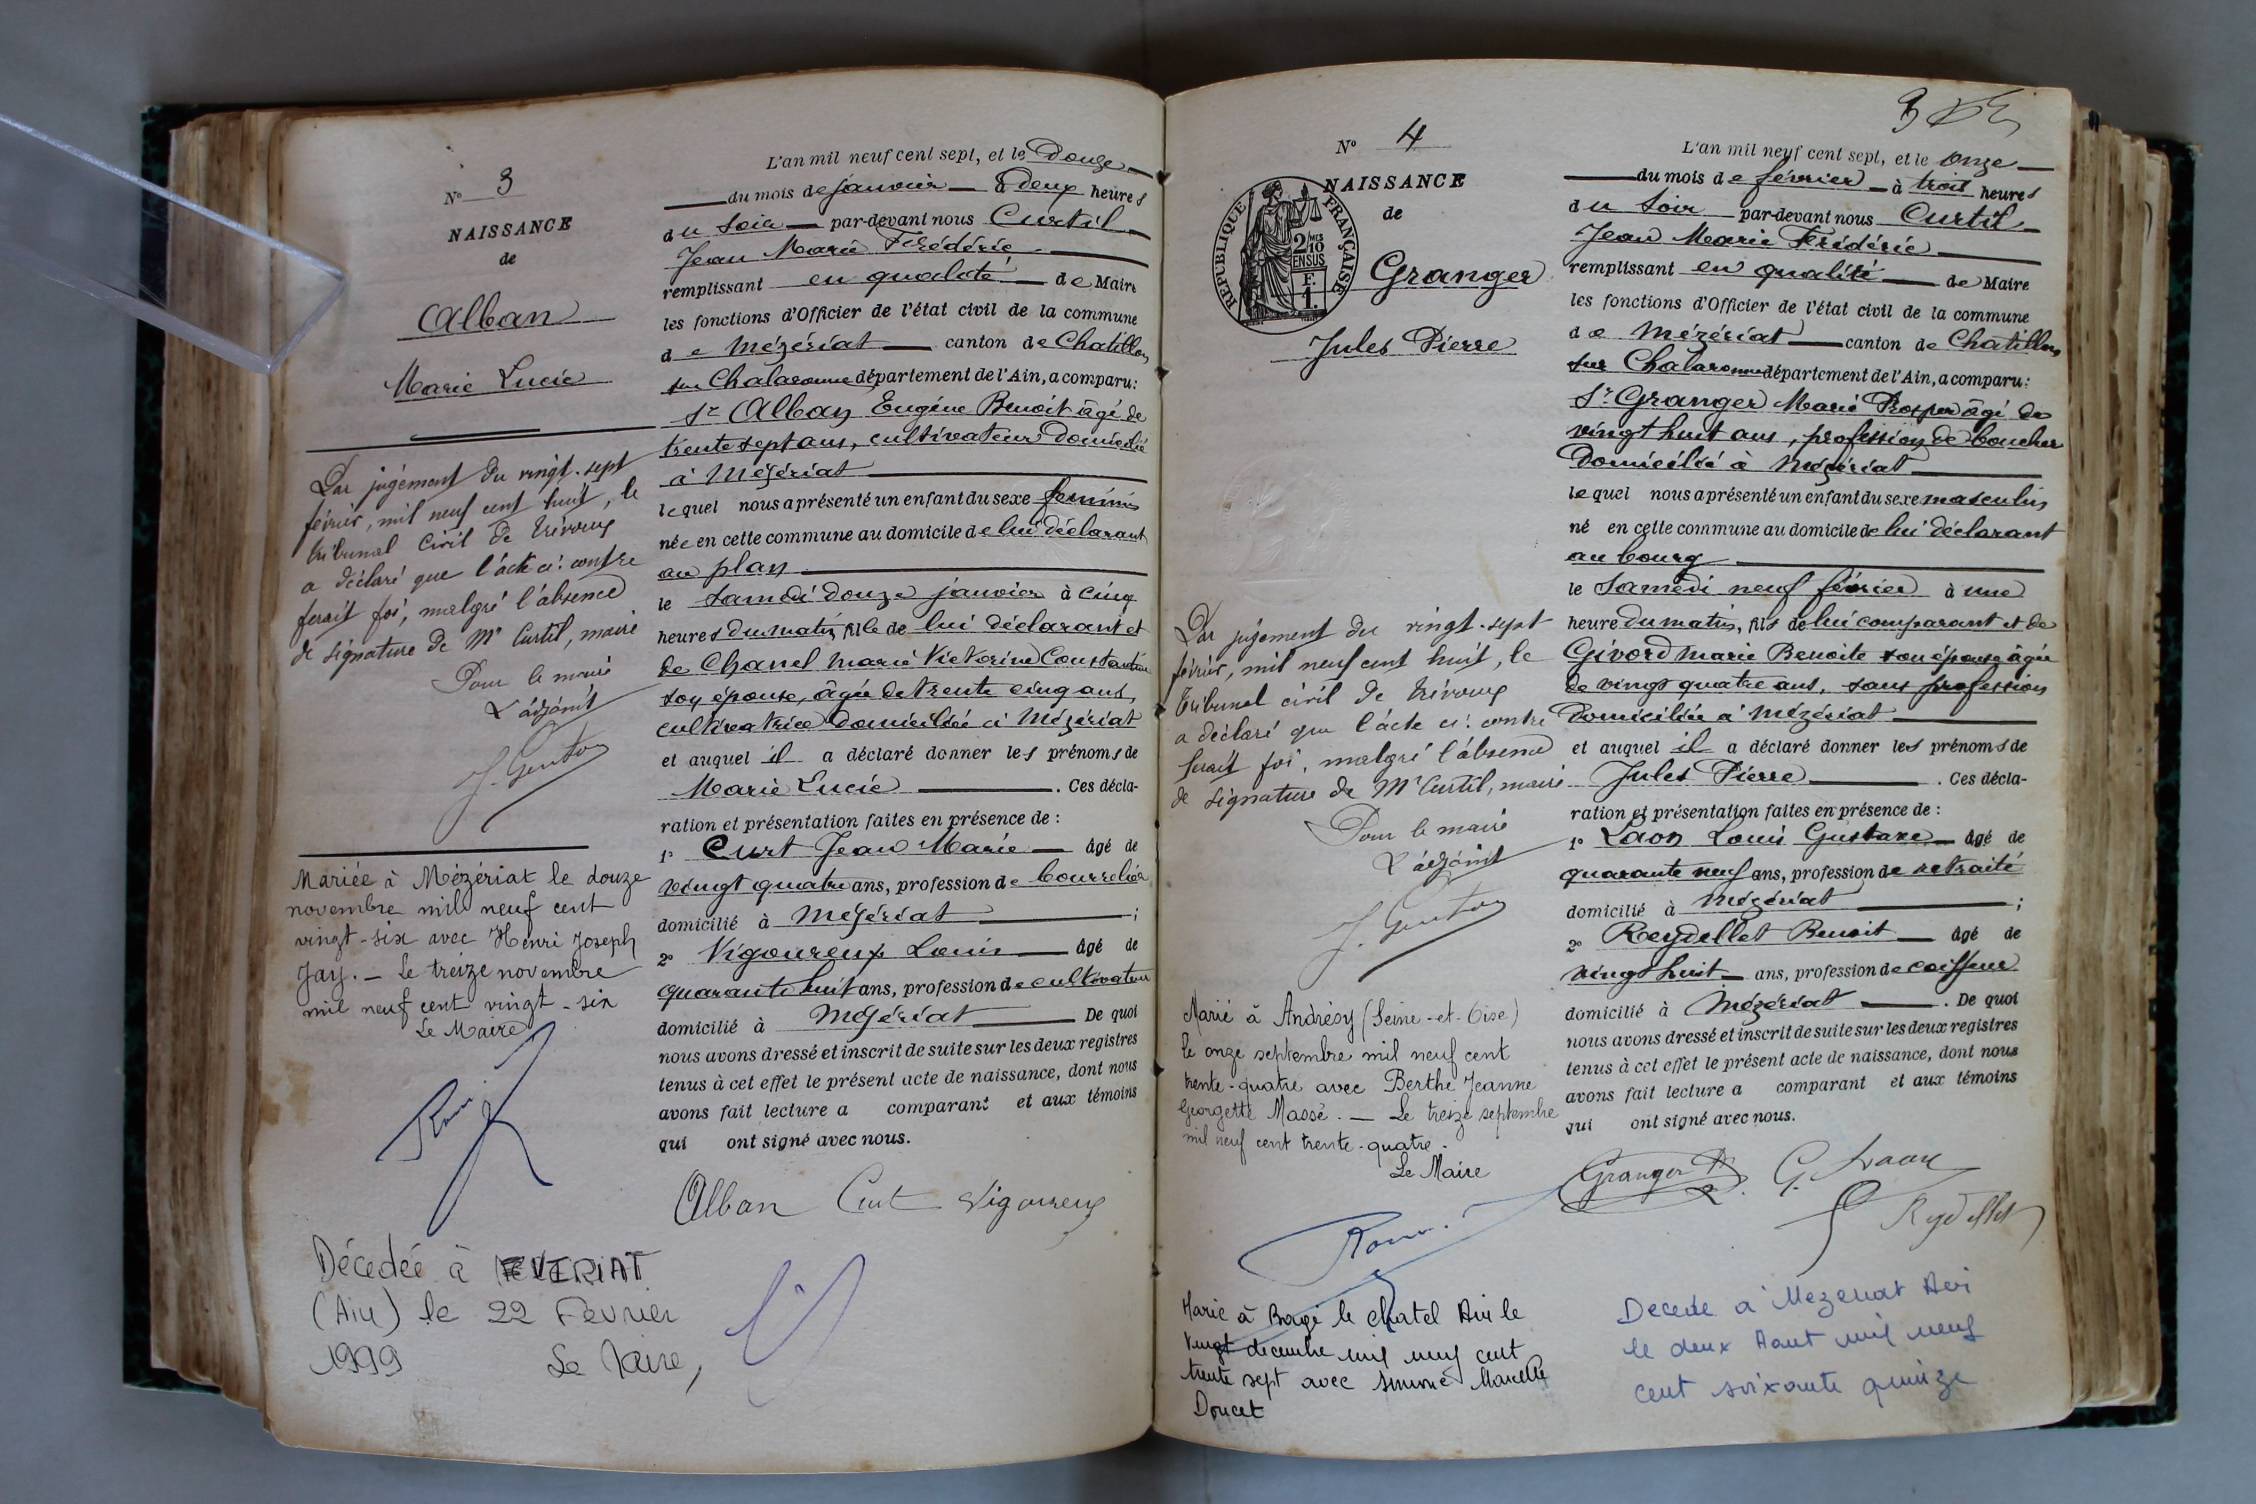 N° 3
NAISSANCE
de
Alban
Marie Lucie
Par jugement du vingt-sept
février, mil neuf cent huit, le
tribunal civil de Trévoux
a déclaré que l'acte ci-contre
ferait foi, malgré l'absence
de signature de Mr Curtil, maire
Pour le maire
L'adjoint
Mariée à Mézériat le douze
novembre mil neuf cent
vingt-six avec Henri Joseph
Jay. — Le treize novembre
mil neuf cent vingt-six
Le Maire
Décedée à
(Ain) le 22 Fevrier
1999 Le Maire,
L'an mil neuf cent sept, et le Douze
du mois de janvier à deux heures
du soir par-devant nous Curtil
Jean Marie Frédéric
remplissant en qualité de Maire
les fonctions d'Officier de l'état civil de la commune
de Mézériat canton de Chatillon
sur Chalaronne département de l'Ain, a comparu :
Sr Alban Eugène Benoit âgé de
trente sept ans, cultivateur domicilié
à Mézériat
lequel nous a présenté un enfant du sexe feminin
née en cette commune au domicile de lui déclarant
au plan
le samedi douze janvier à cinq
heures du matin, fille de lui déclarant et
de Chanel Marie Victorine Constantine
son épouse, âgée de trente cinq ans,
cultivatrice domiciliée à Mézériat
et auquel il a déclaré donner les prénoms de
Marie Lucie . Ces décla-
ration et présentation faites en présence de :
1° Curt Jean Marie âgé de
vingt quatre ans, profession de bourrelier
domicilié à Mézériat ;
2° Vigoureux Louis âgé de
quarante huit ans, profession de cultivateur
domicilié à Mézériat De quoi
nous avons dressé et inscrit de suite sur les deux registres
tenus à cet effet le présent acte de naissance, dont nous
avons fait lecture a comparant et aux témoins
qui ont signé avec nous.
Alban Curt Vigoureux
3
N° 4
NAISSANCE
de
RÉPUBLIQUE FRANÇAISE
2/10
EN SUS
F.
1.
Granger
Jules Pierre
Par jugement du vingt-sept
février, mil neuf cent huit, le
tribunal civil de Trévoux
a déclaré que l'acte ci-contre
ferait foi, malgré l'absence
de signature de Mr Curtil, maire
Pour le maire
L'adjoint
Marié à Andrésy (Seine-et-Oise)
le onze septembre mil neuf cent
trente-quatre avec Berthe Jeanne
Georgette Massé. — Le treize septembre
mil neuf cent trente-quatre.
Le Maire
Marie à Bagé le chatel Ain le
vingt decembre mil neuf cent
trente sept avec Simone Marcelle
Doucet
L'an mil neuf cent sept, et le onze
du mois de février à trois heures
du soir par-devant nous Curtil
Jean Marie Frédéric
remplissant en qualité de Maire
les fonctions d'Officier de l'état civil de la commune
de Mézériat canton de Chatillon
sur Chalaronne département de l'Ain, a comparu :
Sr Granger Marie Prosper âgé de
vingt huit ans, profession de boucher
domicilié à Mézériat
lequel nous a présenté un enfant du sexe masculin
né en cette commune au domicile de lui déclarant
au bourg
le samedi neuf février à une
heure du matin, fils de lui comparant et de
Givord Marie Benoite son épouse âgée
de vingt quatre ans, sans profession
domiciliée à Mézériat
et auquel il a déclaré donner les prénoms de
Jules Pierre . Ces décla-
ration et présentation faites en présence de :
1° Laon Louis Gustave âgé de
quarante neuf ans, profession de retraité
domicilié à Mézériat ;
2° Reydellet Benoit âgé de
vingt huit ans, profession de coiffeur
domicilié à Mézériat . De quoi
nous avons dressé et inscrit de suite sur les deux registres
tenus à cet effet le présent acte de naissance, dont nous
avons fait lecture a comparant et aux témoins
qui ont signé avec nous.
Granger G. Laon
Reydellet
Decede a Mezeriat Ain
le deux Aout mil neuf
cent soixante quinze